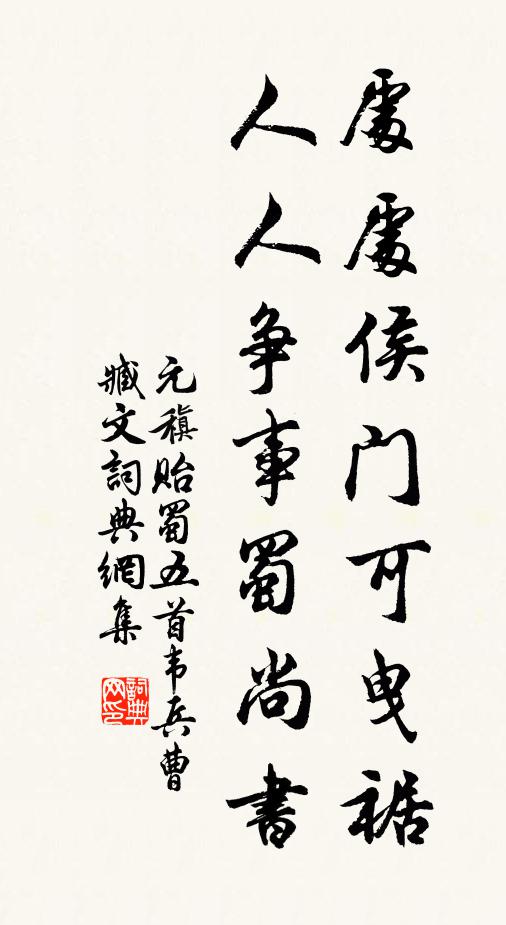 處處侯門可曳裾
人人争事蜀尚書
元稹貽蜀五首韦兵曹
臧文詞典網集
詞典网印